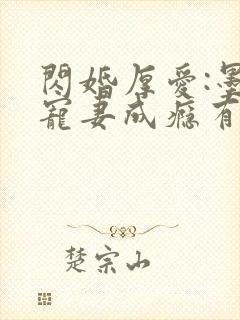 閃婚厚愛:墨
寵妻成癮有
楚宗山